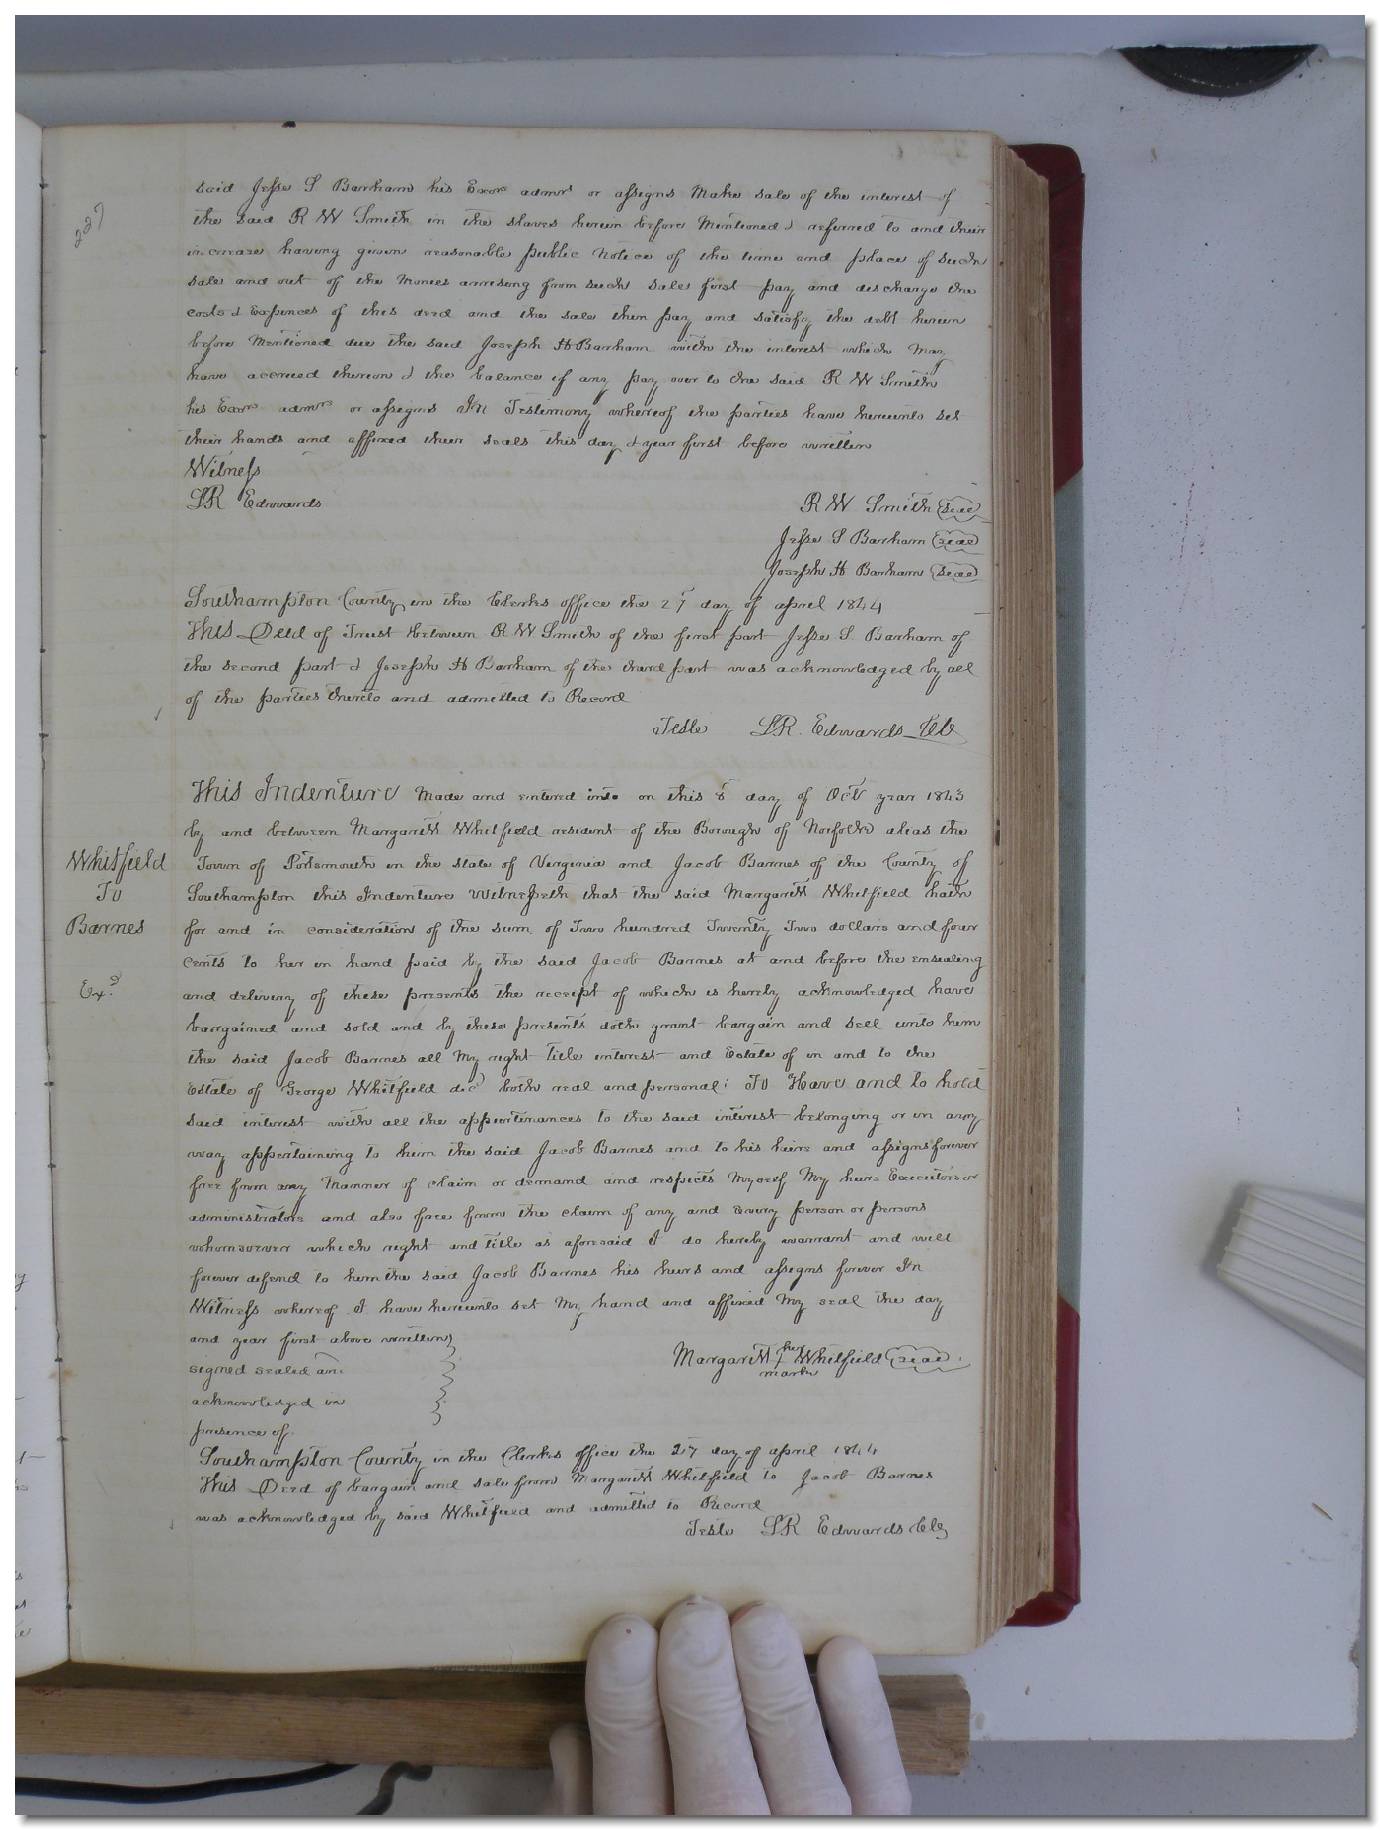 227
said Jesse S Barham his Exors admrs or assigns Make sale of the interest of
the said R W Smith in the slaves herein before Mentioned & referred to and their
increase having given reasonable public Notice of the time and place of such
sale and out of the Monies arrising from such sale first pay and discharge the
costs & Expences of this deed and the sale then pay and satisfy the debt herein
before Mentioned due the said Joseph H Barham with the interest which May
have accrued thereon & the balance if any pay over to the said R W Smith
his Exors admrs or assigns In Testimony whereof the parties have hereunto set
their hands and affixed their seals this day & year first before written
Witness
LR Edwards
R W Smith seal
Jesse S Barham seal
Joseph H Barham seal
Southampton County in the Clerks office the 27 day of april 1844
This Deed of Trust between R W Smith of the first part Jesse S. Barham of
the second part & Joseph H Barham of the third part was acknowledged by all
of the parties thereto and admitted to Record
Teste LR. Edwards Clk
This Indenture Made and entered into on this 8 day of Oct year 1843
by and between Margarett Whitfield resident of the Borough of Norfolk alias the
Whitfield
To
Barnes
Exd
Town of Portsmouth in the state of Virginia and Jacob Barnes of the County of
Southampton this Indenture Witnesseth that the said Margarett Whitfield hath
for and in consideration of the sum of Two hundred Twenty Two dollars and four
cents to her in hand paid by the said Jacob Barnes at and before the ensealing
and delivery of these presents the receipt of which is hereby acknowledged have
bargained and sold and by these presents doth grant bargain and sell unto him
the said Jacob Barnes all My right title interest and Estate of in and to the
Estate of George Whitfield decd both real and personal: To Have and to hold
said interest with all the appurtinances to the said interest belonging or in any
way appertaining to him the said Jacob Barnes and to his heirs and assigns forever
free from any Manner of claim or demand and respects Myself My heirs Executors or
administrators and also free from the claim of any and every person or persons
whomsoever which right and title as aforesaid I do hereby warrant and will
forever defend to him the said Jacob Barnes his heirs and assigns forever In
Witness whereof I have hereunto set My hand and affixed My seal the day
and year first above written
signed sealed and
acknowledged in
presence of
Margarett her Whitfield seal
mark
Southampton County in the Clerks office the 27 day of april 1844
This Deed of bargain and sale from Margarett Whitfield to Jacob Barnes
was acknowledged by said Whitfield and admitted to Record
Teste LR Edwards Clk